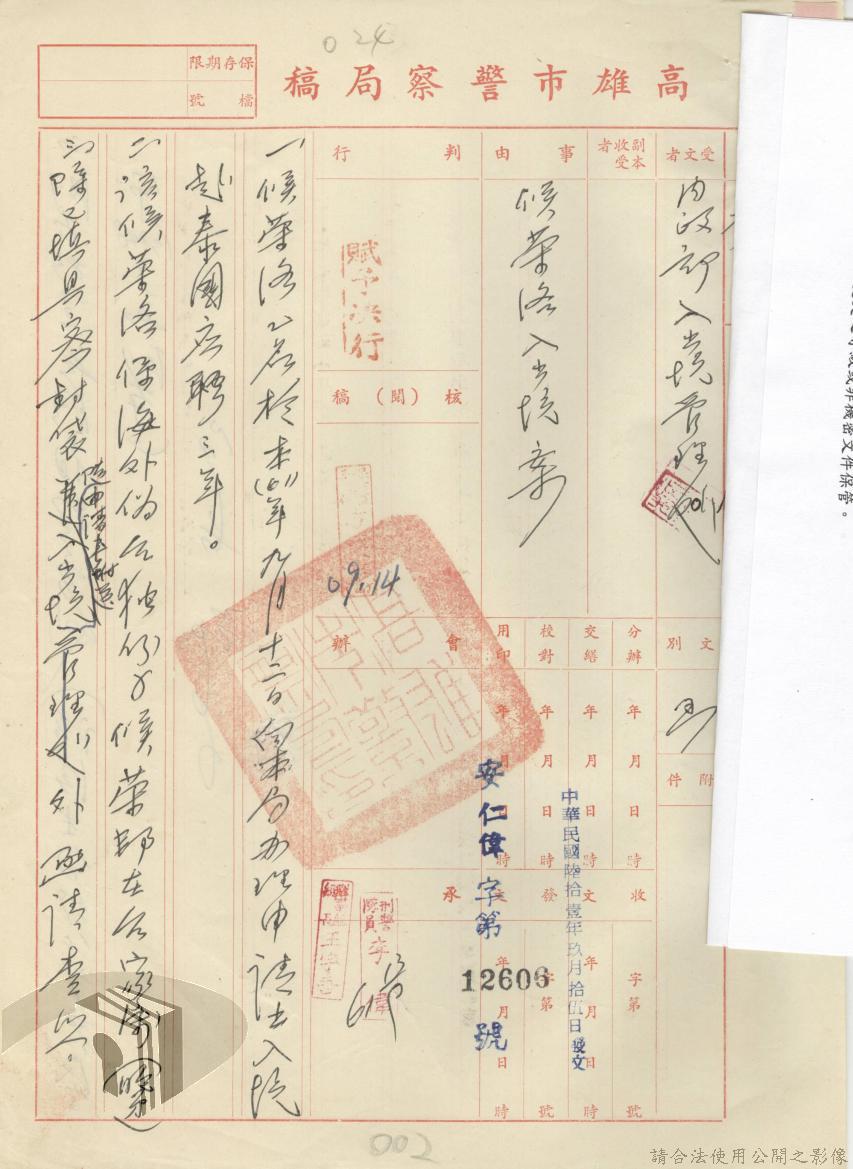 024
高雄市警察局稿
保存期限
檔號
受文者
內政部入出境管理處
副本收受者
事由
侯榮洛入出境案
判行
賦予決行
核(閱)稿
09.14
會辦
承
文別
函
附件
分辦 年月日時
交繕 年月日時
校對 年月日時
用印 年月日時
收文 字第 號
發文 年月日時
字第 號
年月日時
中華民國陸拾壹年玖月拾伍日發文
安仁偉字第12606號
刑警隊員李偉
一、侯榮洛乙名於本(61)年九月十二日向本局辦理申請出入境
赴泰國應聘三年。
二、該侯榮洛係海外偽台獨份子侯榮邦在台家屬
三、除已填具密封袋隨申請書附送入出境管理處外函請查照。
或非機密文件保管。
002
請合法使用公開之影像